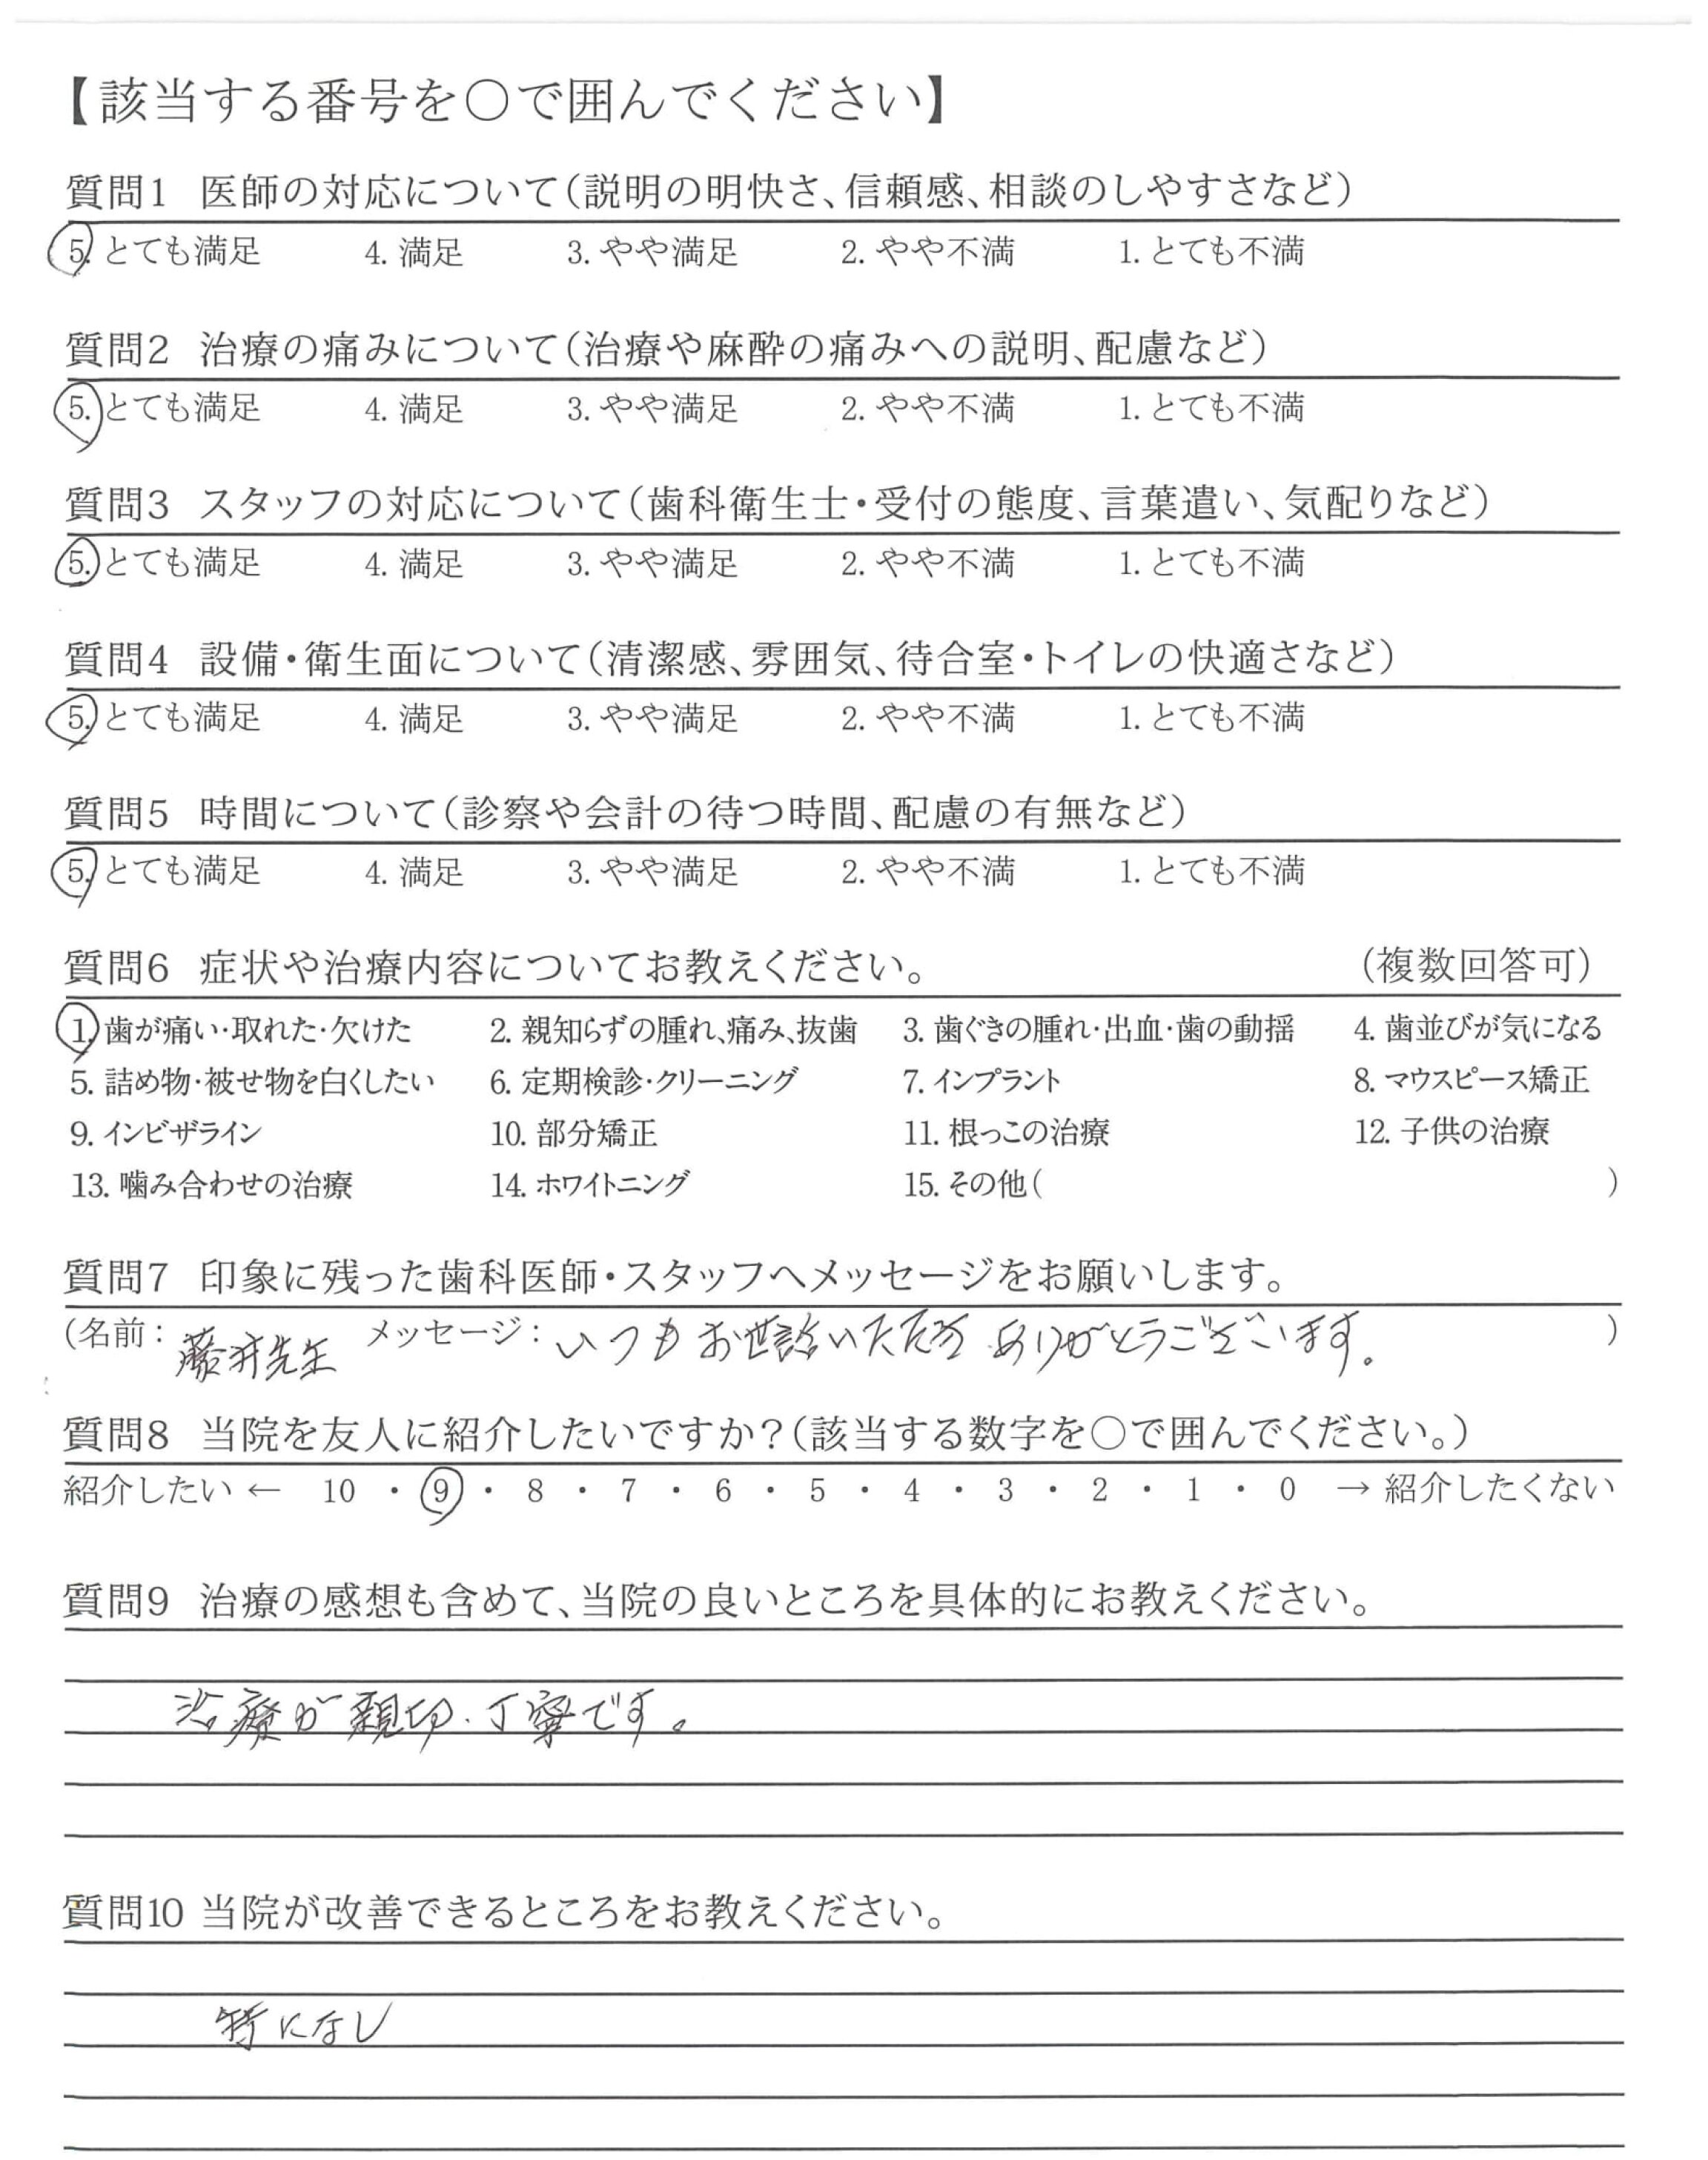 【該当する番号を〇で囲んでください】
質問1 医師の対応について(説明の明快さ、信頼感、相談のしやすさなど)
5. とても満足 4. 満足 3. やや満足 2. やや不満 1. とても不満
質問2 治療の痛みについて(治療や麻酔の痛みへの説明、配慮など)
5. とても満足 4. 満足 3. やや満足 2. やや不満 1. とても不満
質問3 スタッフの対応について(歯科衛生士・受付の態度、言葉遣い、気配りなど)
5. とても満足 4. 満足 3. やや満足 2. やや不満 1. とても不満
質問4 設備・衛生面について(清潔感、雰囲気、待合室・トイレの快適さなど)
5. とても満足 4. 満足 3. やや満足 2. やや不満 1. とても不満
質問5 時間について(診察や会計の待つ時間、配慮の有無など)
5. とても満足 4. 満足 3. やや満足 2. やや不満 1. とても不満
質問6 症状や治療内容についてお教えください。 (複数回答可)
1. 歯が痛い・取れた・欠けた 2. 親知らずの腫れ、痛み、抜歯 3. 歯ぐきの腫れ・出血・歯の動揺 4. 歯並びが気になる
5. 詰め物・被せ物を白くしたい 6. 定期検診・クリーニング 7. インプラント 8. マウスピース矯正
9. インビザライン 10. 部分矯正 11. 根っこの治療 12. 子供の治療
13. 噛み合わせの治療 14. ホワイトニング 15. その他( )
質問7 印象に残った歯科医師・スタッフへメッセージをお願いします。
(名前: 藤井先生 メッセージ: いつもお世話いただき ありがとうございます。 )
質問8 当院を友人に紹介したいですか?(該当する数字を〇で囲んでください。)
紹介したい ← 10 ・ 9 ・ 8 ・ 7 ・ 6 ・ 5 ・ 4 ・ 3 ・ 2 ・ 1 ・ 0 → 紹介したくない
質問9 治療の感想も含めて、当院の良いところを具体的にお教えください。
治療が親切・丁寧です。
質問10 当院が改善できるところをお教えください。
特になし